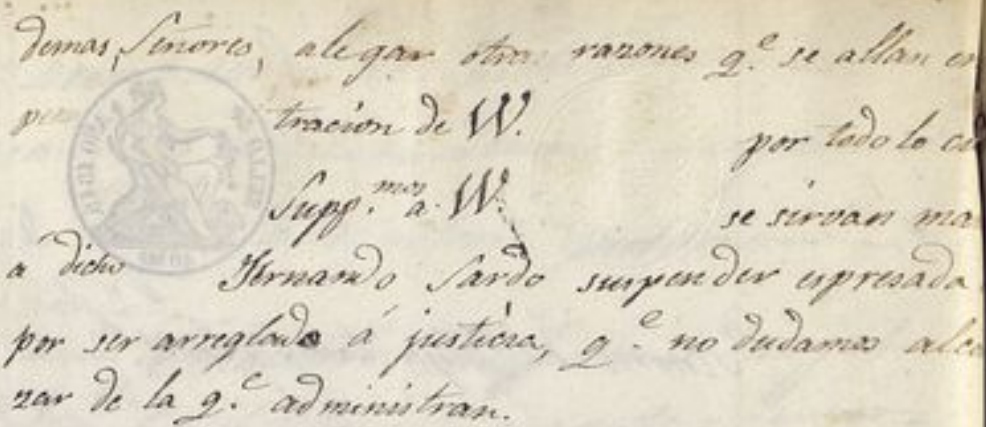 demas Señores, alegar otras razones q.e se allan en
tracion de W. por todo lo
Supp.mos a W. se sirvan
a dicho Fernando Sardo suspender espresada
por ser arreglado á justicia, q.e no dudamos
zar de la q.e administran.